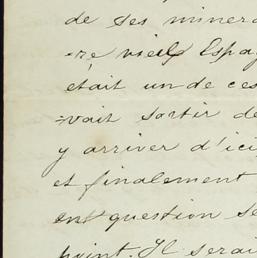 de ses minera
=ré vieil Espag
était un de ces
=vait sortir de
y arriver d'ici
et finalement
en question se
point. Il serai